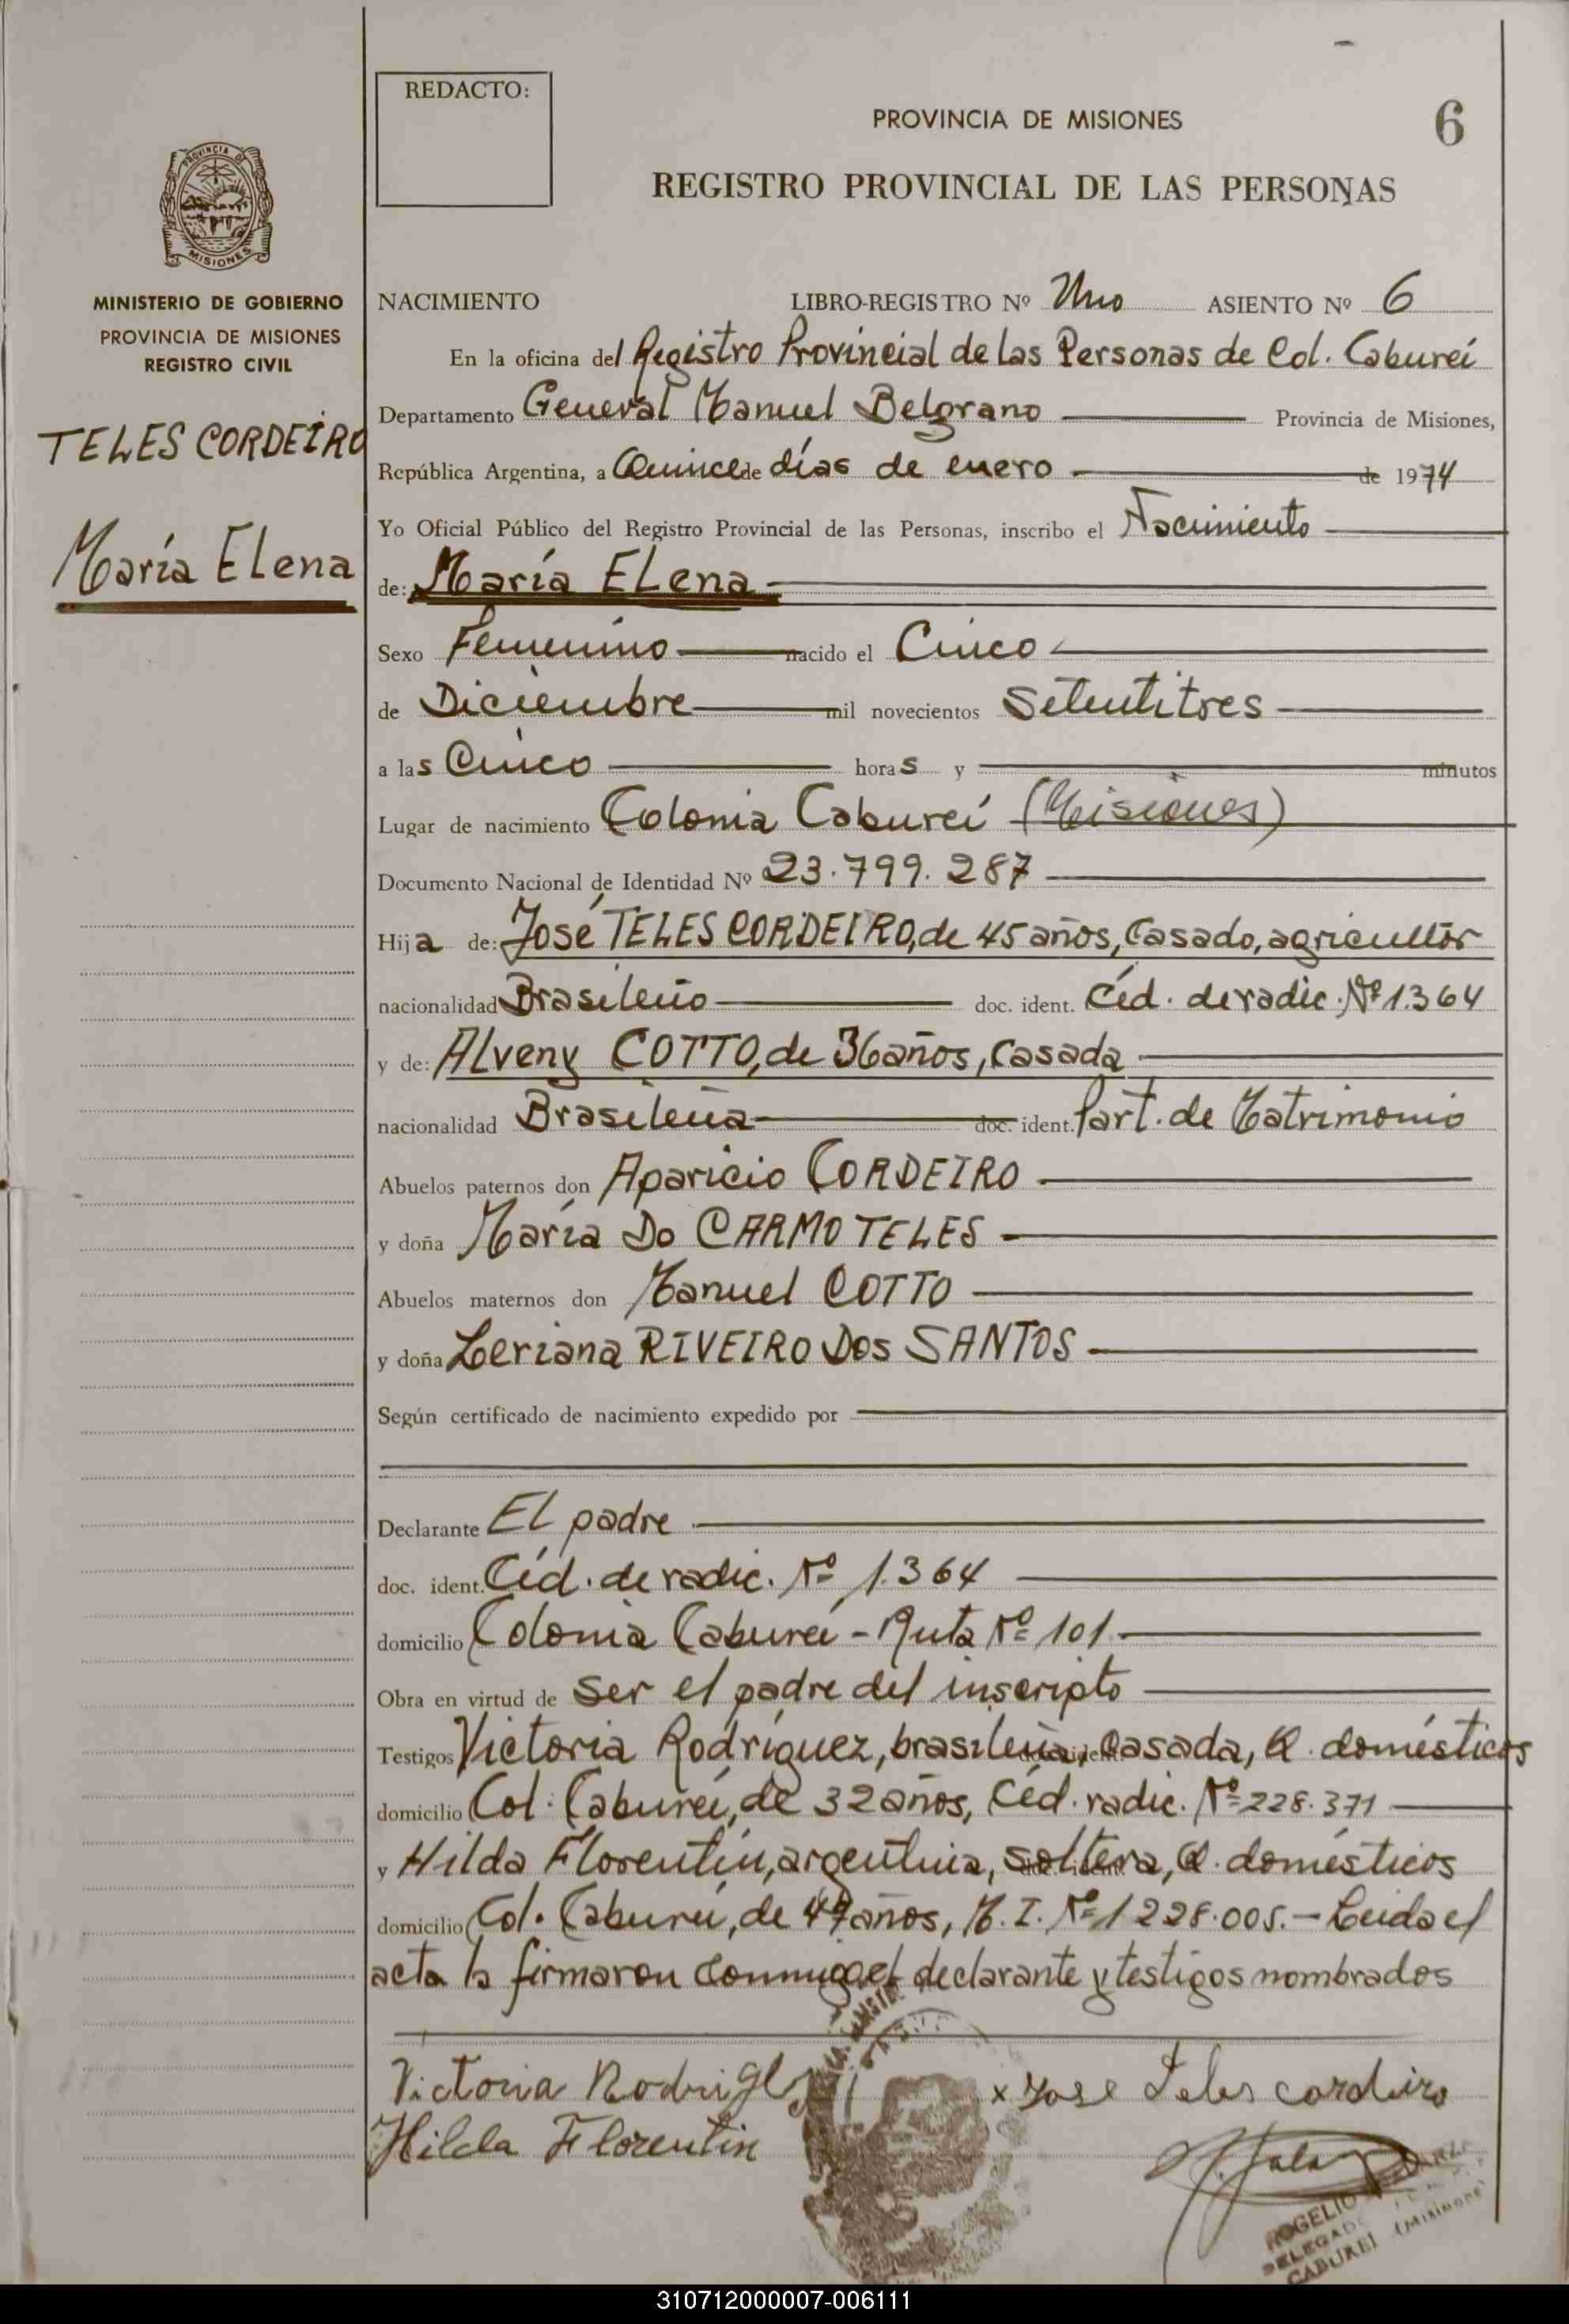 REDACTO:
PROVINCIA DE MISIONES
6
REGISTRO PROVINCIAL DE LAS PERSONAS
PROVINCIA DE
MISIONES
MINISTERIO DE GOBIERNO
PROVINCIA DE MISIONES
REGISTRO CIVIL
TELES CORDEIRO
María Elena
NACIMIENTO LIBRO-REGISTRO Nº Uno ASIENTO Nº 6
En la oficina del Registro Provincial de las Personas de Col. Cabureí
Departamento General Manuel Belgrano Provincia de Misiones,
República Argentina, a Quince de días de enero de 1974
Yo Oficial Público del Registro Provincial de las Personas, inscribo el Nacimiento
de: María ELena
Sexo Femenino nacido el Cinco
de Diciembre mil novecientos Setentitres
a las Cinco horas y minutos
Lugar de nacimiento Colonia Cabureí (Misiones)
Documento Nacional de Identidad Nº 23.799.287
Hija de: José TELES CORDEIRO, de 45 años, Casado, agricultor
nacionalidad Brasileño doc. ident. Céd. de radic. Nº 1.364
y de: ALveny COTTO, de 36 años, Casada
nacionalidad Brasileña doc. ident. Part. de Matrimonio
Abuelos paternos don Aparicio CORDEIRO
y doña María Do CARMO TELES
Abuelos maternos don Manuel COTTO
y doña Leriana RIVEIRO Dos SANTOS
Según certificado de nacimiento expedido por
Declarante EL padre
doc. ident. Céd. de radic. Nº 1.364
domicilio Colonia Cabureí - Ruta Nº 101
Obra en virtud de Ser el padre del inscripto
Testigos Victoria Rodríguez, brasileña, Casada, Q. domésticos
domicilio Col. Cabureí, de 32 años, Céd. radic. Nº 228.371
y Hilda Florentín, argentina, soltera, Q. domésticos
domicilio Col. Cabureí, de 49 años, M. I. Nº 1228.005. - Leida el
acta la firmaron conmigo el declarante y testigos nombrados
Victoria x Jose Teles cordeiro
Hilda Florentin
ROGELIO
DELEGADO
CABUREI (Misiones)
310712000007-006111